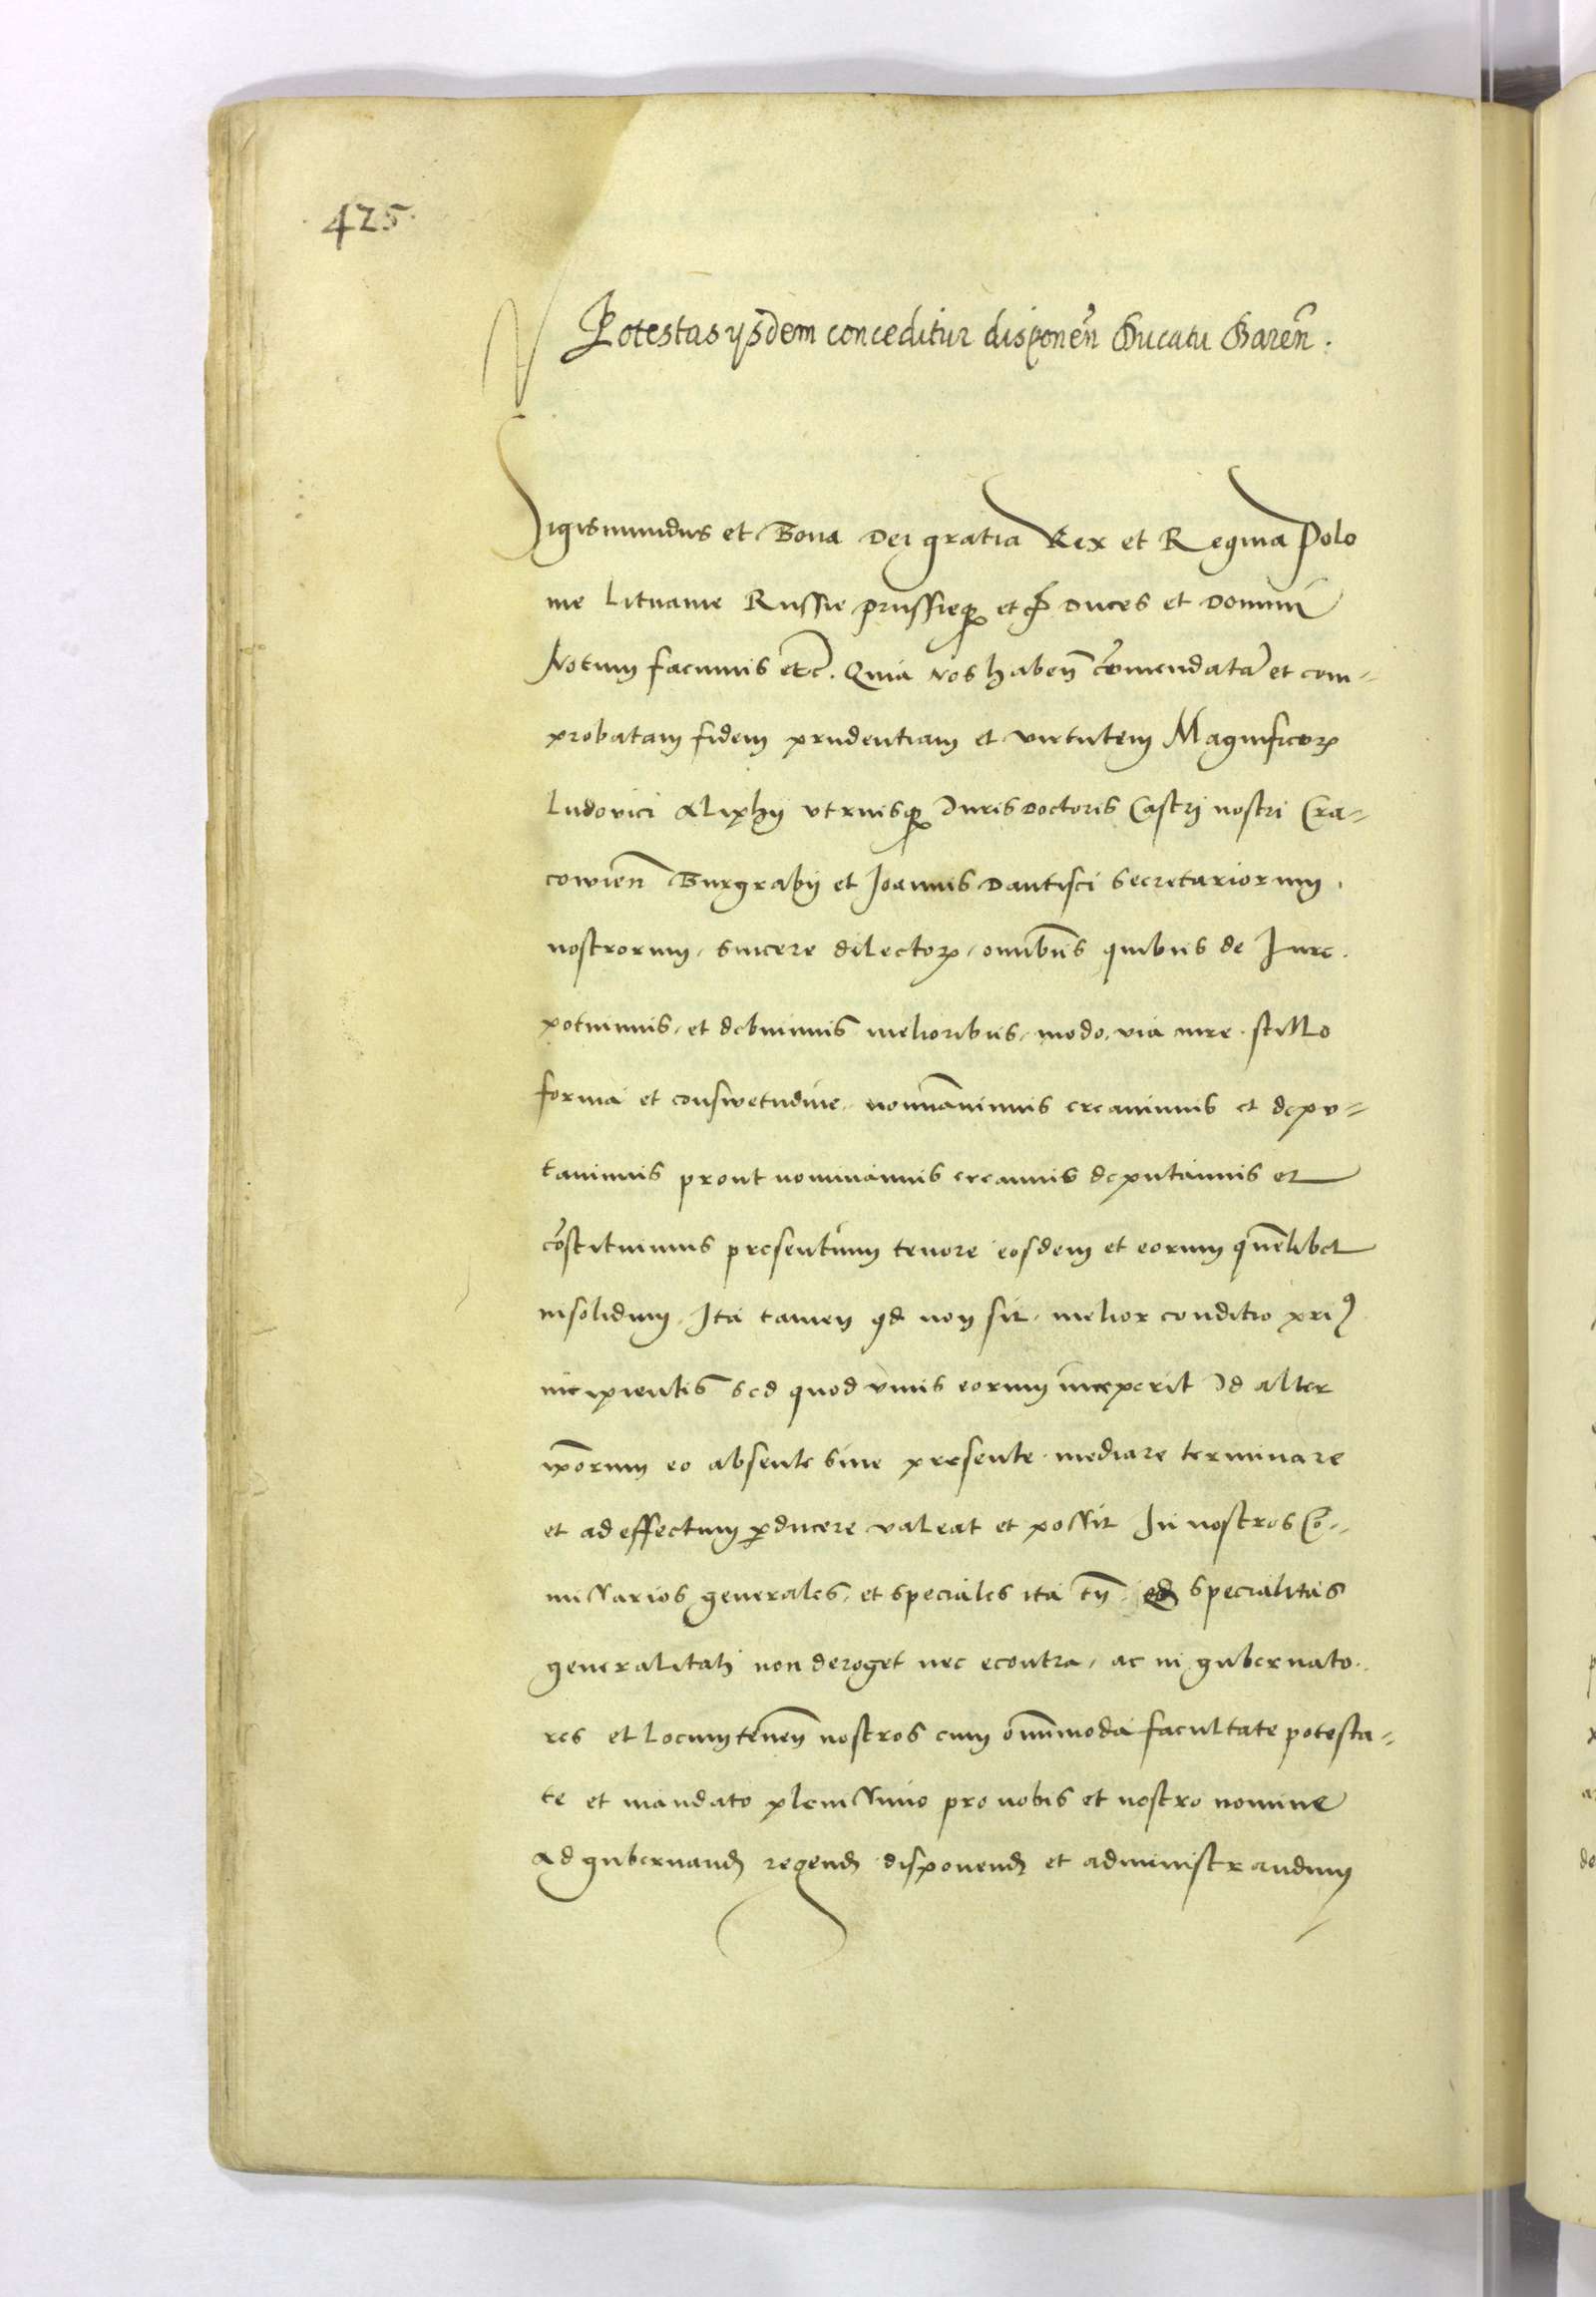 425.
Potestas ijsdem conceditur disponen̄ Ducatu Baren̄.
Sigismundus et Bona Dei gratia Rex et Regina Polo
nie Lituanie Russie prussieq; etc̄ Duces et Domini
Notum facimus etc. Quia Nos haben̄ cōmendatā et com=
probatam fidem prudentiam et virtutem Magnificoꝝ
Ludovici Aliphij vtriusq; Juris doctoris Castri nostri Cra=
cowien̄ Burgrabij et Joannis Dantisci Secretariorum
nostrorum, sincere dilectoꝝ, omnibus quibus de Jure
potuimus, et debuimus melioribus, modo, via iure stillo
forma et consuetudine, nominavimus creavimus et depu=
tavimus prout nominamus creamus deputamus et
cōstituimus presentium tenore eosdem et eorum quēlibet
insolidum, Ita tamen qd non sit, melior conditio pri9
incipientis sed quod vnus eorum inceperit Id alter
ip̄orum eo absente sive presente mediare terminare
et ad effectum ꝑducere valeat et possit In nostros Cō=
missarios generales, et speciales ita tn̄ qd specialitas
generalitati non deroget nec econtra, ac in gubernato
res et Locumtenen̄ nostros cum omnimoda facultate potesta=
te et mandato plenissimo pro nobis et nostro nomine
Ad gubernand regend disponend et administrandum